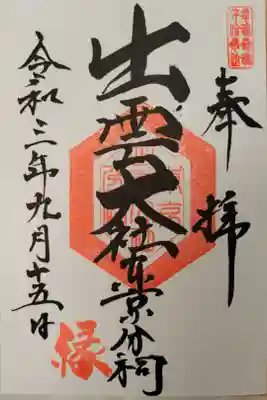 奉拝
出雲大社東京分祠
令和三年九月十五日
縁